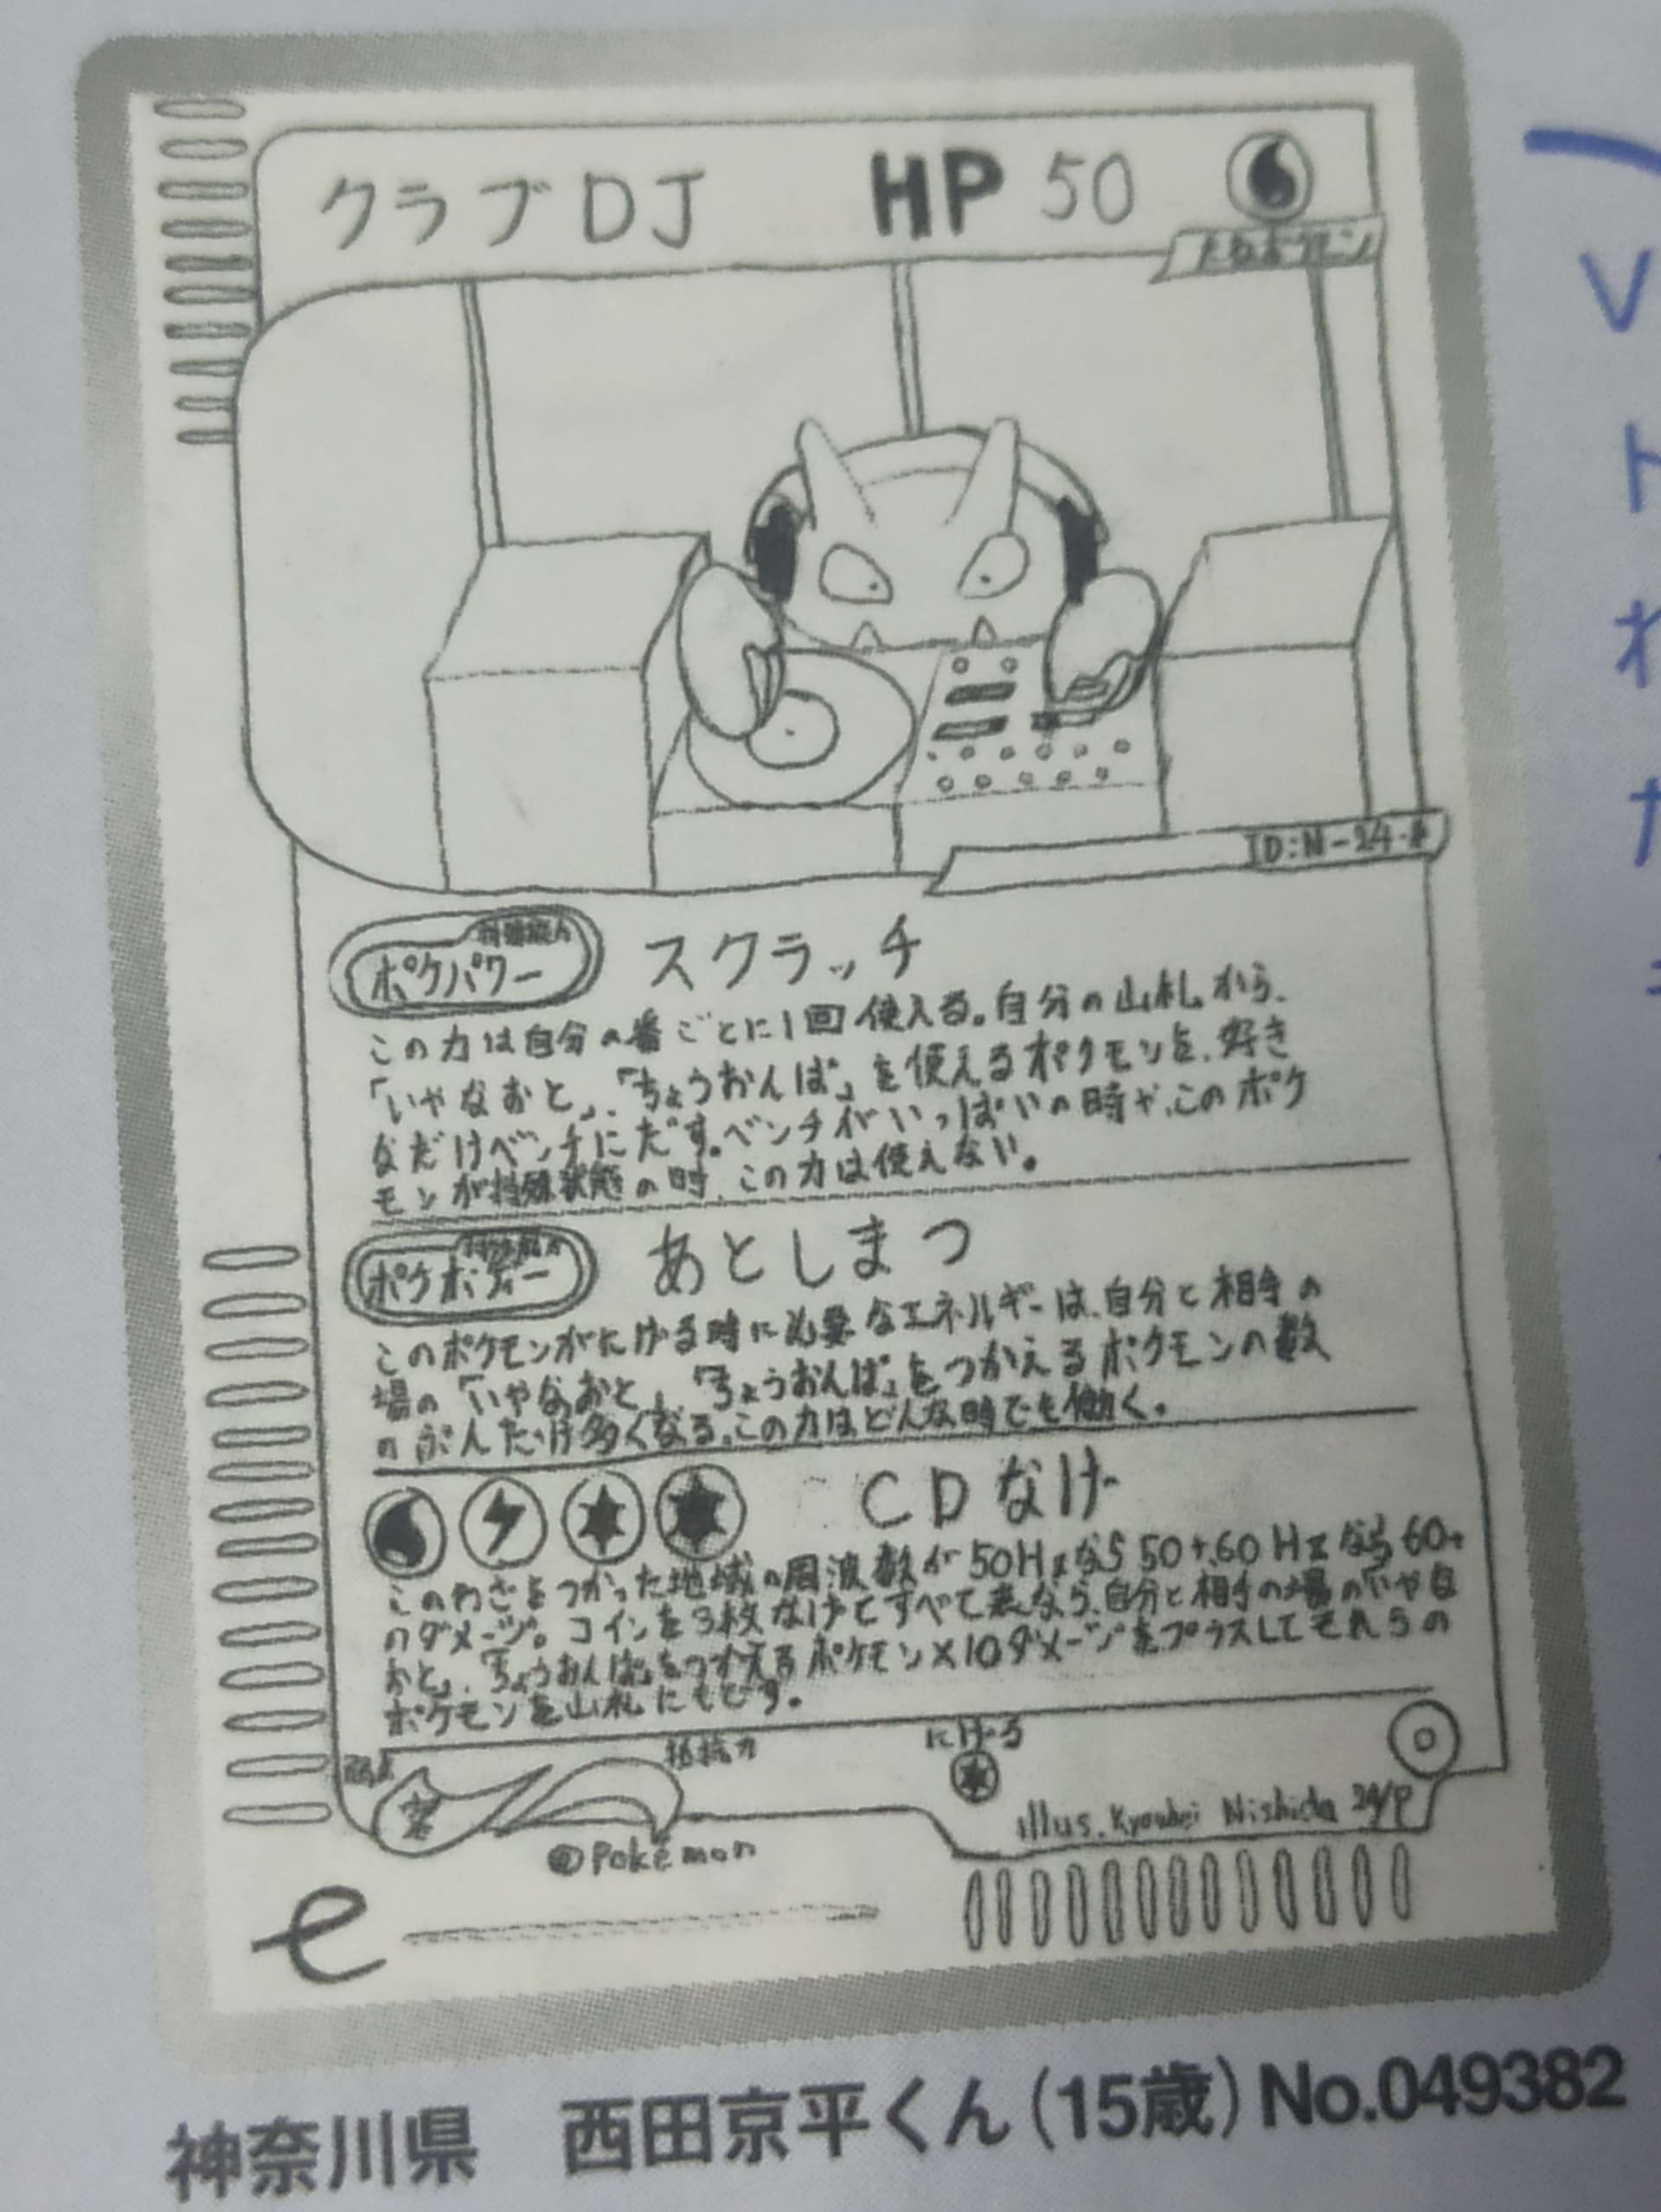 クラブDJ HP 50
ID:N-24-#
ポケパワー スクラッチ
この力は自分の番ごとに1回使える。自分の山札から、
「いやなおと」、「ちょうおんぱ」を使えるポケモンを、好き
なだけベンチにだす。ベンチがいっぱいの時や、このポケ
モンが特殊状態の時、この力は使えない。
特殊能力
ポケボディー あとしまつ
このポケモンがにげる時に必要なエネルギーは、自分と相手の
場の「いやなおと」、「ちょうおんぱ」をつかえるポケモンの数
のぶんだけ多くなる。この力はどんな時でも働く。
CDなげ
このわざをつかった地域の周波数が50Hzなら50+,60Hzなら60+
のダメージ。コインを3枚なげてすべて表なら、自分と相手の場の「いやな
おと」、「ちょうおんぱ」をつかえるポケモン×10ダメージをプラスしてそれらの
ポケモンを山札にもどす。
弱点 抵抗力 にげる
illus. Kyouhei Nishida
©Pokémon
e
神奈川県 西田京平くん(15歳) No.049382
V
ト
れ